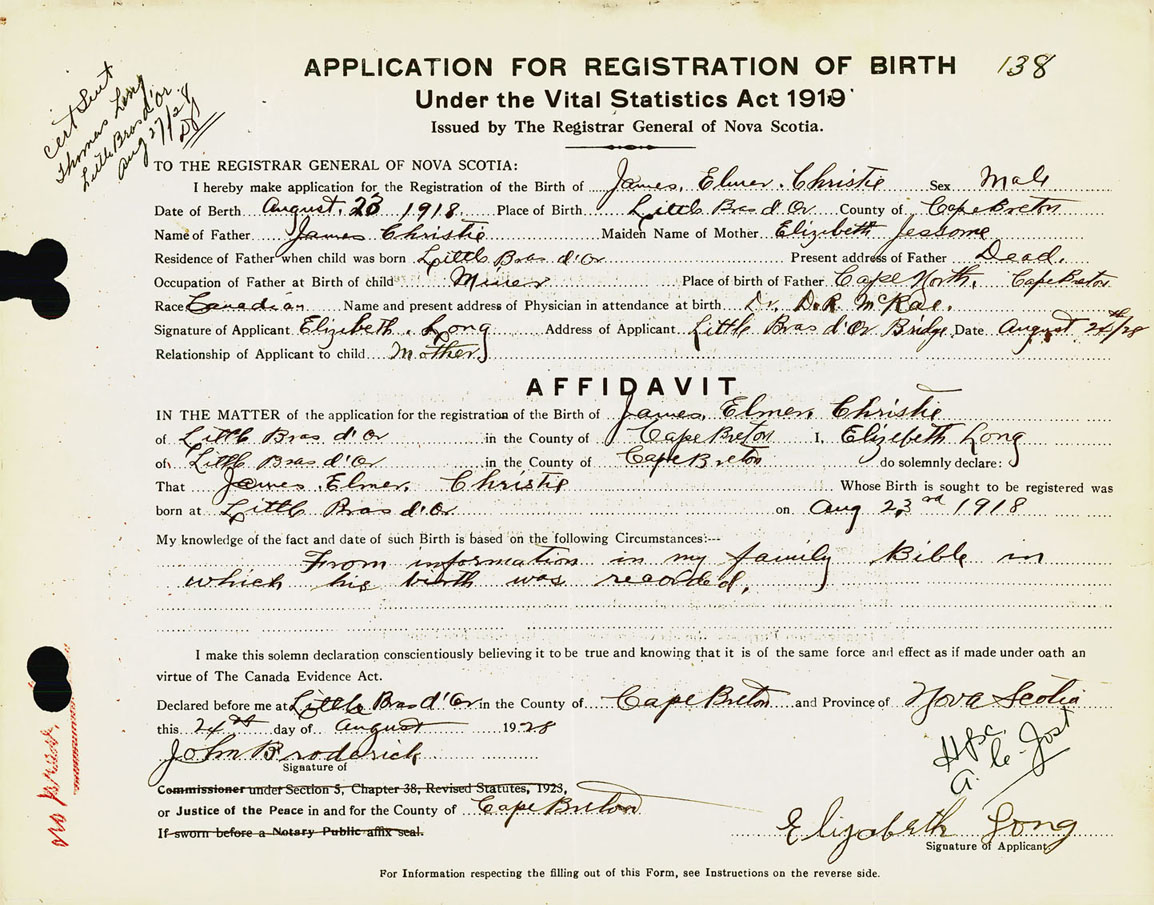 APPLICATION FOR REGISTRATION OF BIRTH 138
Under the Vital Statistics Act 1919
Issued by The Registrar General of Nova Scotia.
Cert Sent
Thomas Long
Little Bras d'Or
Aug 27/28
TO THE REGISTRAR GENERAL OF NOVA SCOTIA:
I hereby make application for the Registration of the Birth of James Elmer Christie Sex Male
Date of Berth August 23 1918 Place of Birth Little Bras d'Or County of Cape Breton
Name of Father James Christie Maiden Name of Mother Elizibeth Jessome
Residence of Father when child was born Little Bras d'Or Present address of Father Dead.
Occupation of Father at Birth of child Miner Place of birth of Father Cape North, Cape Breton
Race Canadian Name and present address of Physician in attendance at birth Dr. D.R. McRae.
Signature of Applicant Elizibeth Long Address of Applicant Little Bras d'Or Bridge Date August 24th/28
Relationship of Applicant to child Mother
AFFIDAVIT
IN THE MATTER of the application for the registration of the Birth of James Elmer Christie
of Little Bras d'Or in the County of Cape Breton I, Elizebeth Long
of Little Bras d'Or in the County of Cape Breton do solemnly declare:
That James Elmer Christie Whose Birth is sought to be registered was
born at Little Bras d'Or on Aug 23rd 1918
My knowledge of the fact and date of such Birth is based on the following Circumstances:---
From information in my family Bible in
which his birth was recorded.
I make this solemn declaration conscientiously believing it to be true and knowing that it is of the same force and effect as if made under oath an
virtue of The Canada Evidence Act.
Declared before me at Little Bras d'Or in the County of Cape Breton and Province of Nova Scotia
this 24th day of August 1928
John Broderick
Signature of
Commissioner under Section 5, Chapter 38, Revised Statutes, 1923,
or Justice of the Peace in and for the County of Cape Breton
If sworn before a Notary Public affix seal.
Elizabeth Long
Signature of Applicant
For Information respecting the filling out of this Form, see Instructions on the reverse side.